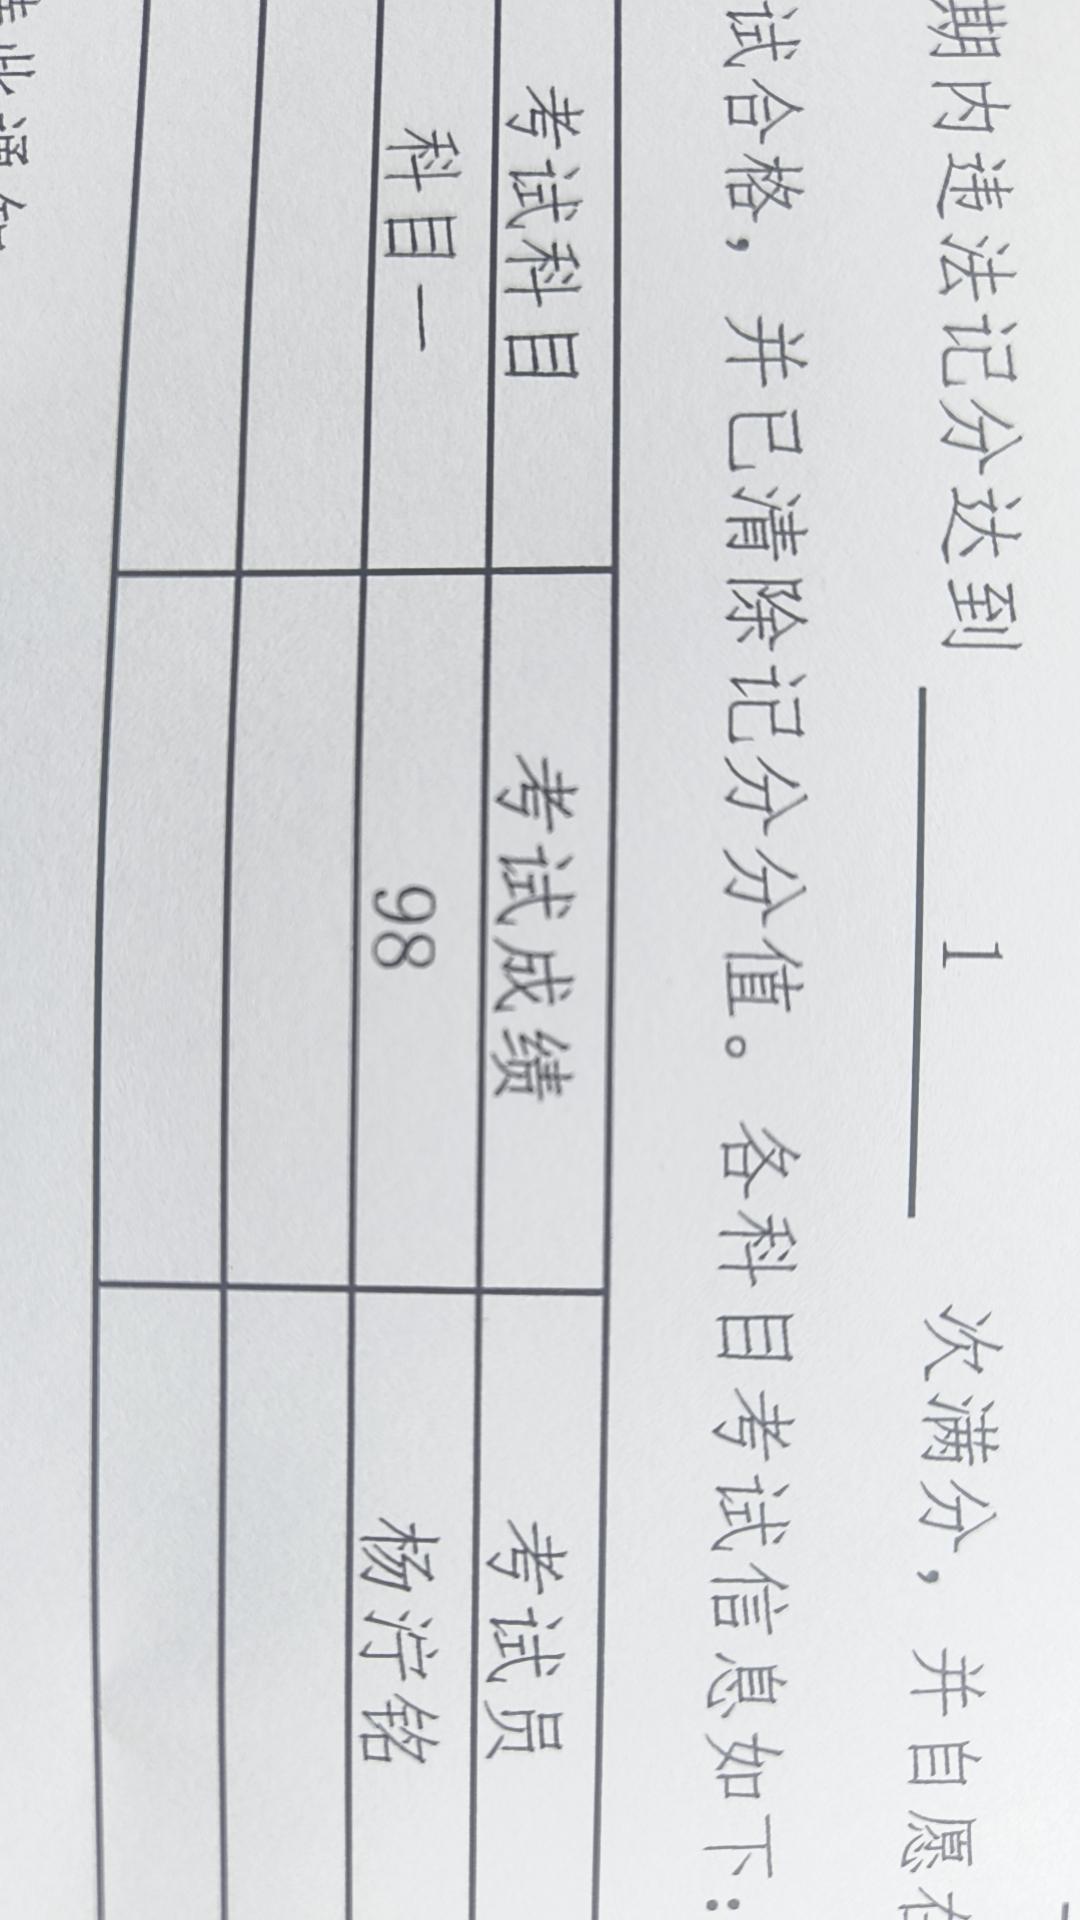 期内违法记分达到 1 次满分，并自愿在
试合格，并已清除记分分值。各科目考试信息如下：
考试科目 考试成绩 考试员
科目一 98 杨泞铭
此通知